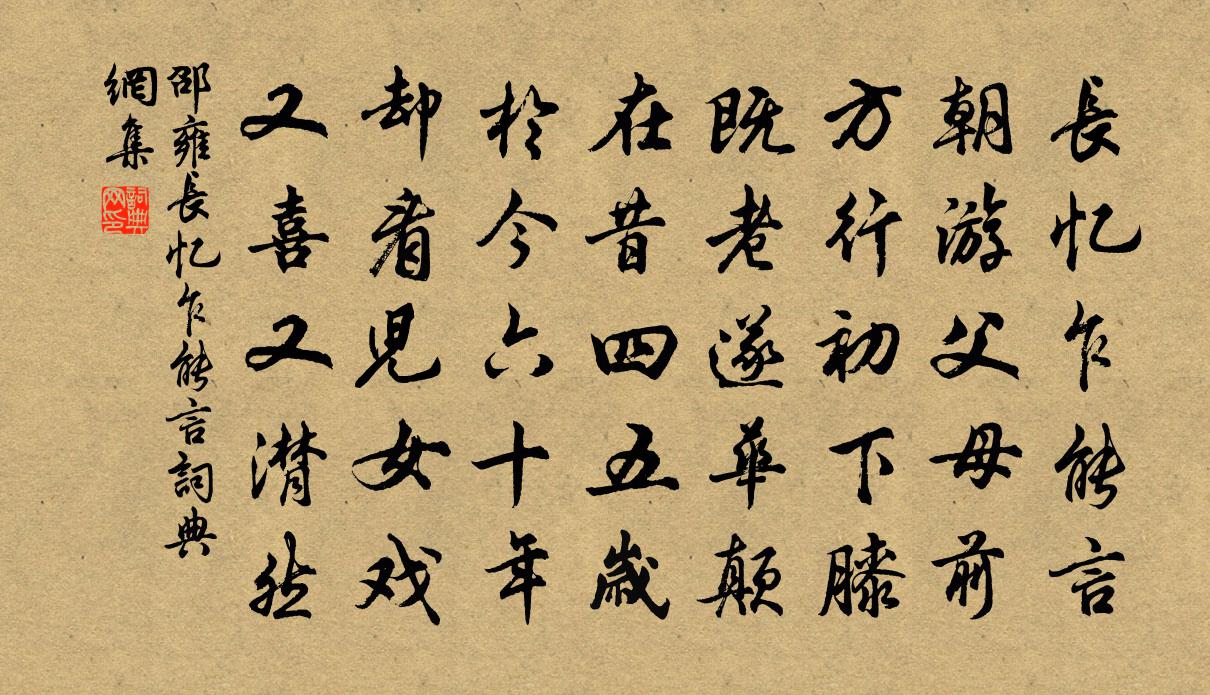 長忆乍能言
朝游父母前
方行初下膝
既老遂華顛
在昔四五歲
於今六十年
却看児女戏
又喜又潸然
邵雍長忆乍能言詞典
網集
詞典
网印